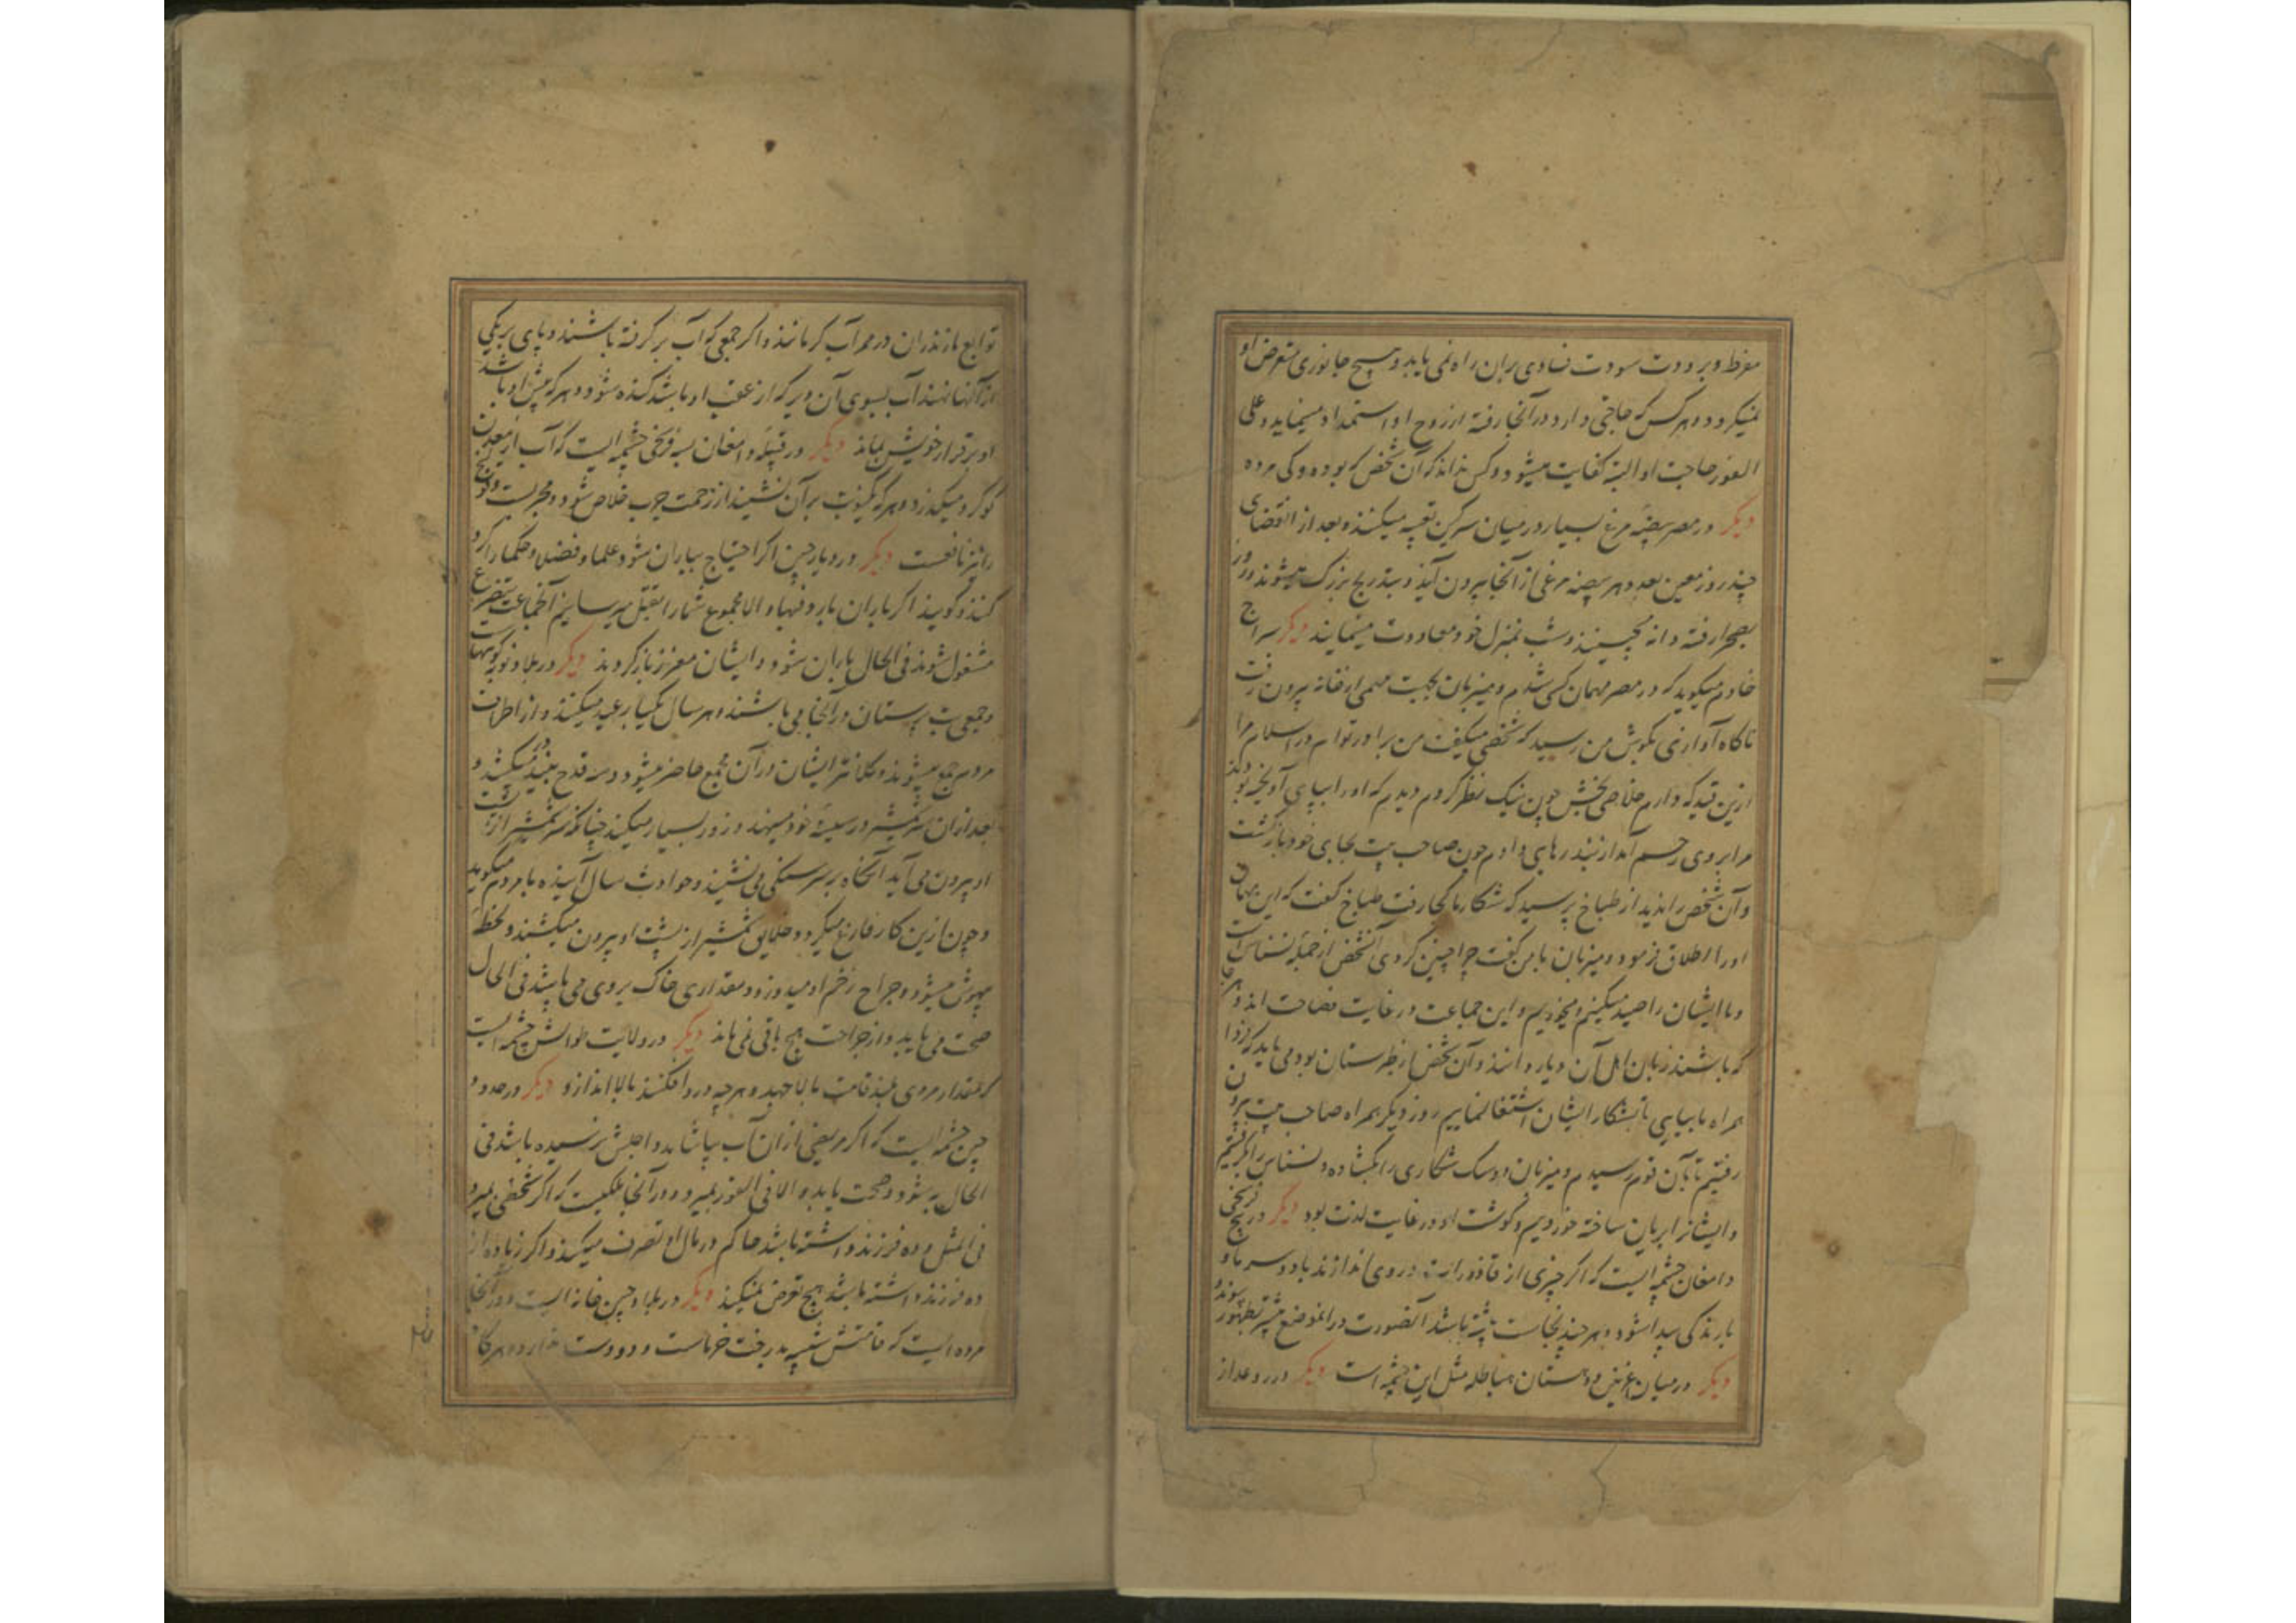 مفرط و برودت سودت فسادی بران راه نمی یابد و هیچ جانوری متعرض او
نمیکردد و هرکس که حاجتی دارد در آنجا رفته از روح او استمداد مینماید و علی
الفور حاجت او البته کفایت میشود و کس نداند که آن شخص که بوده و کی مرده
دیکر در مصر بیضه مرغ بسیار در میان سرکین تعبیه میکنند و بعد از انقضای
چند روز معین بعدد هر بیضه مرغی از آنجا بیرون آید و بتدریج بزرک میشوند و روز
بصحرا رفته دانه میچینند و شب بمنزل خود معاودت مینمایند دیکر سراج
خادم میکوید که در مصر مهمان کسی شدم و میزبان بجهت مهمی از خانه بیرون رفت
ناکاه آوازی بکوش من رسید که شخصی میکفت من برادر توام در اسلام مرا
ازین قید که دارم خلاصی بخش چون نیک نظر کردم دیدم که او را بپای آویخته بودند
مرا بروی رحم آمد از بند رهایی دادم چون صاحب بیت بجای خود بازکشت
و آن شخص را ندید از طباخ پرسید که شکار ما کجا رفت طباخ کفت که این مهمان
او را اطلاق فرمود و میزبان با من کفت چرا چنین کردی آنشخص از جمله نسناس است
و ما ایشان را صید میکنیم و میخوریم و این جماعت در غایت فصاحت اند و هرجا
که باشند زبان اهل آن دیار دانند و آن شخص از طبرستان بود می باید که فردا
همراه ما بیایی تا بشکار ایشان اشتغال نماییم روز دیکر همراه صاحب بیت بیرون
رفتیم تا بآن قوم رسیدم و میزبان دو سک شکاری را بکشاده و نسناس را بکرفتیم
و ایشانرا بریان ساخته خوردیم و کوشت او در غایت لذت بود دیکر در پنج فرسخی
دامغان چشمه ایست که اکر چیزی از قاذورات در وی اندازند باد و سرما و
بارندکی پیدا شود و هر چند نجاست بیشتر باشد آنصورت در آنموضع بیشتر بظهور پیوندد
دیکر در میان غزنین و هندستان مباطله مثل این چشمه است دیکر در رودعد از
توابع مازندران در ممر آب کرمانند و اکر جمعی که آب برکرفته باشند و پای بر یکی
از آنها نهند آب بسوی آن دیر که از عقب او باشد کنده شود و هرکه پیش او باشد
او برقرار خویش بماند دیکر در قبله دامغان بسه فرسخی چشمه ایست که آب از معدن
کوکرد میکذرد و هرکه یکنوبت بر آن نشیند از زحمت جرب خلاص شود و مجربست و قولنج
را نیز نافعست دیکر در دیار چین اکر احتیاج بباران شود علما و فضلا و حکما را کرد
کنند و کویند اکر باران بارد فبها و الا مجموع شما را بقتل میرسانیم آنجماعت بتضرع
مشغول شوند فی الحال باران شود و ایشان معزز بازکردند دیکر در بلاد نوبه کوهیست
و جمعی بت پرستان در آنجا می باشند و هر سال یکبار عید میکنند و از اطراف
مردم جمع میشوند و کلانتر ایشان در آن مجمع حاضر میشود و سه قدح نبیذ در میکشد و
بعد از ان سر شمشیر در سینه خود مینهد و زور بسیار میکند چنانکه سر شمشیر از پشت
او بیرون می آید آنکاه بر سر سنکی می نشیند و حوادث سال آینده با مردم میکوید
و چون ازین کار فارغ میکردد خلایق شمشیر از پشت او بیرون میکشند و لحظه
بیهوش میشود و جراح زخم او میدوزد و مقداری خاک بروی می پاشد فی الحال
صحت می یابد و از جراحت هیچ باقی نمی ماند دیکر در ولایت طوالش چشمه ایست
که بمقدار مردی بلند قامت بالا جهد و هرچه در او افکنند بالا اندازد دیکر در حدود
چین چشمه ایست که اکر مریضی از ان آب بیاشامد و اجلش نرسیده باشد فی
الحال به شود و صحت یابد و الا فی الفور بمیرد و در آنجا ملکیست که اکر شخصی بمیرد
فی المثل و ده فرزند داشته باشد حاکم در مال او تصرف میکند و اکر زیاده از
ده فرزند داشته باشد هیچ تعرض نمیکند دیکر در بلاد چین خانه ایست و در آنجا
مرده ایست که قامتش شبیه بدرخت خرماست و دو دست دارد و هرکاه